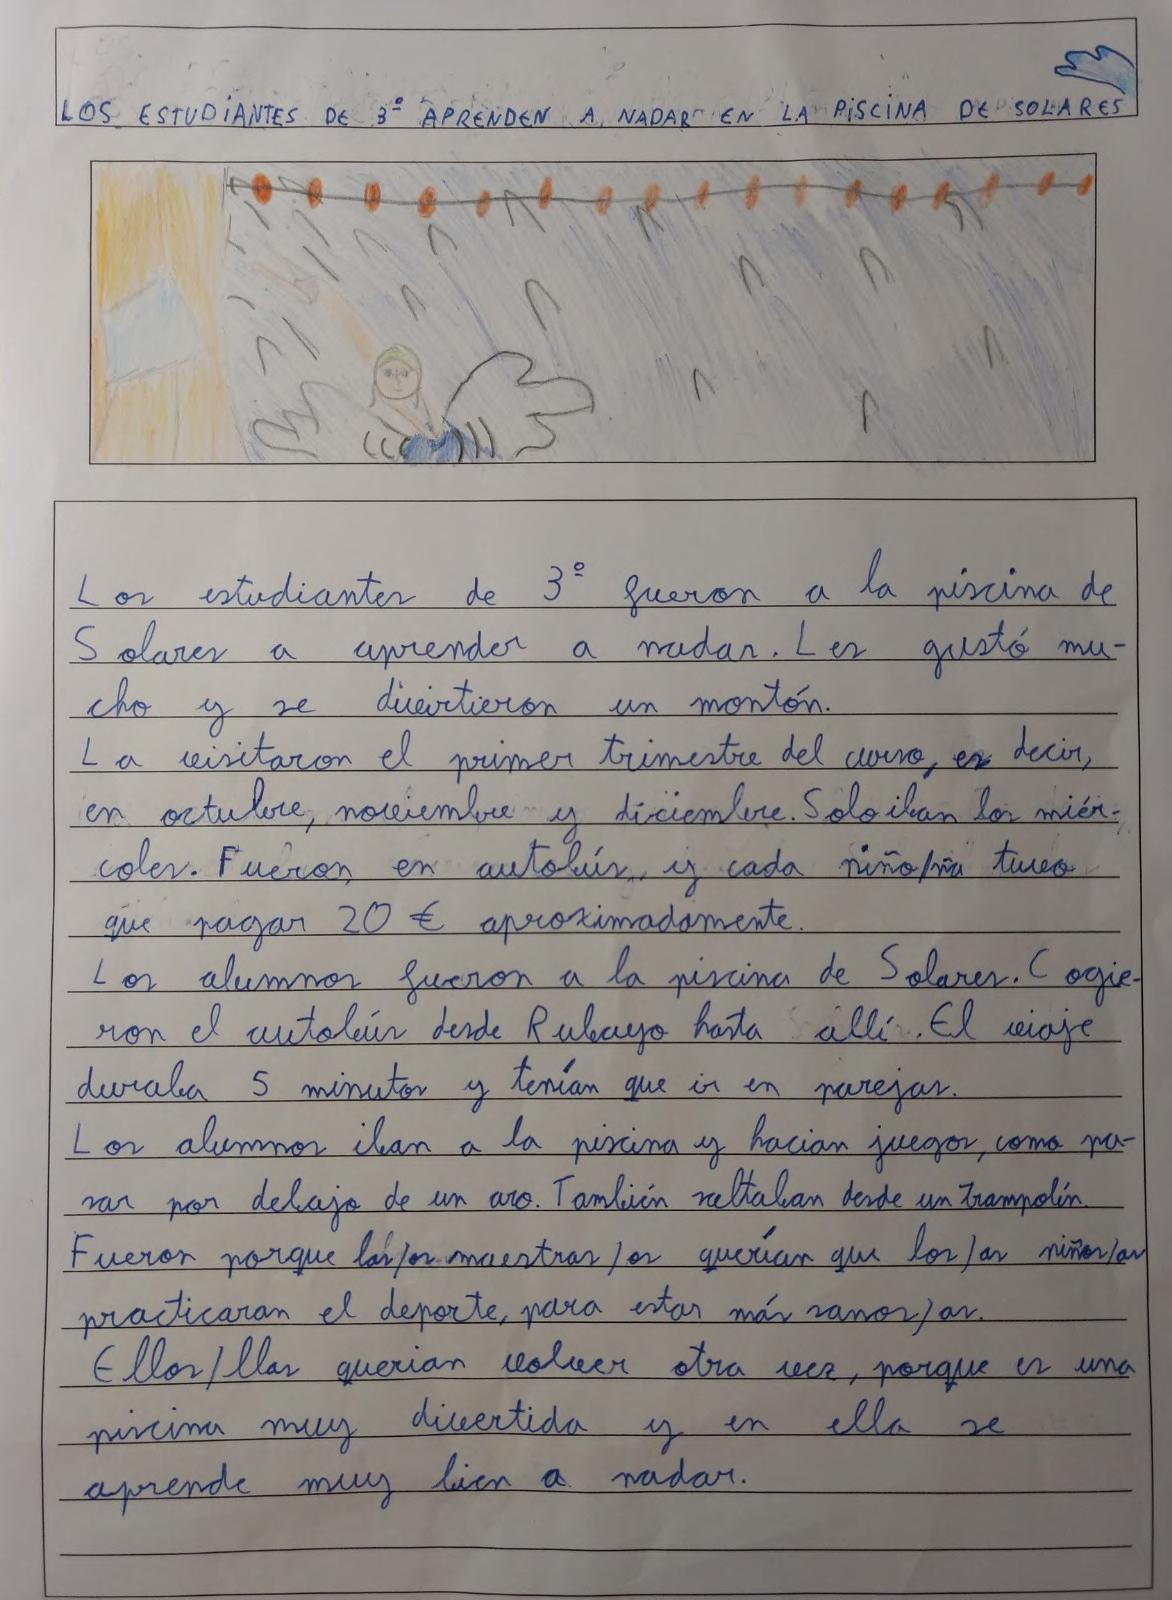 LOS ESTUDIANTES DE 3º APRENDEN A NADAR EN LA PISCINA DE SOLARES
Los estudiantes de 3º fueron a la piscina de
Solares a aprender a nadar. Les gustó mu-
cho y se divirtieron un montón.
La visitaron el primer trimestre del curso, es decir,
en octubre, noviembre y diciembre. Solo iban los miér-
coles. Fueron en autobús, y cada niño/ña tuvo
que pagar 20 € aproximadamente.
Los alumnos fueron a la piscina de Solares. Cogie-
ron el autobús desde Rubayo hasta allí. El viaje
duraba 5 minutos y tenían que ir en parejas.
Los alumnos iban a la piscina y hacían juegos, como pa-
sar por debajo de un aro. También saltaban desde un trampolín.
Fueron porque las/os maestras/os querían que los/as niños/as
practicaran el deporte, para estar más sanos/as.
Ellos/llas querian volver otra vez, porque es una
piscina muy divertida y en ella se
aprende muy bien a nadar.